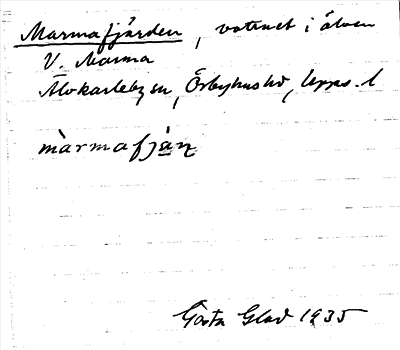 Marmafjärden, vattnet i älven
V. Marma
Älvkarleby sn, Örbyhus hd, Upps. l
màrmafjạ̀ṇ
Gösta Glad 1935